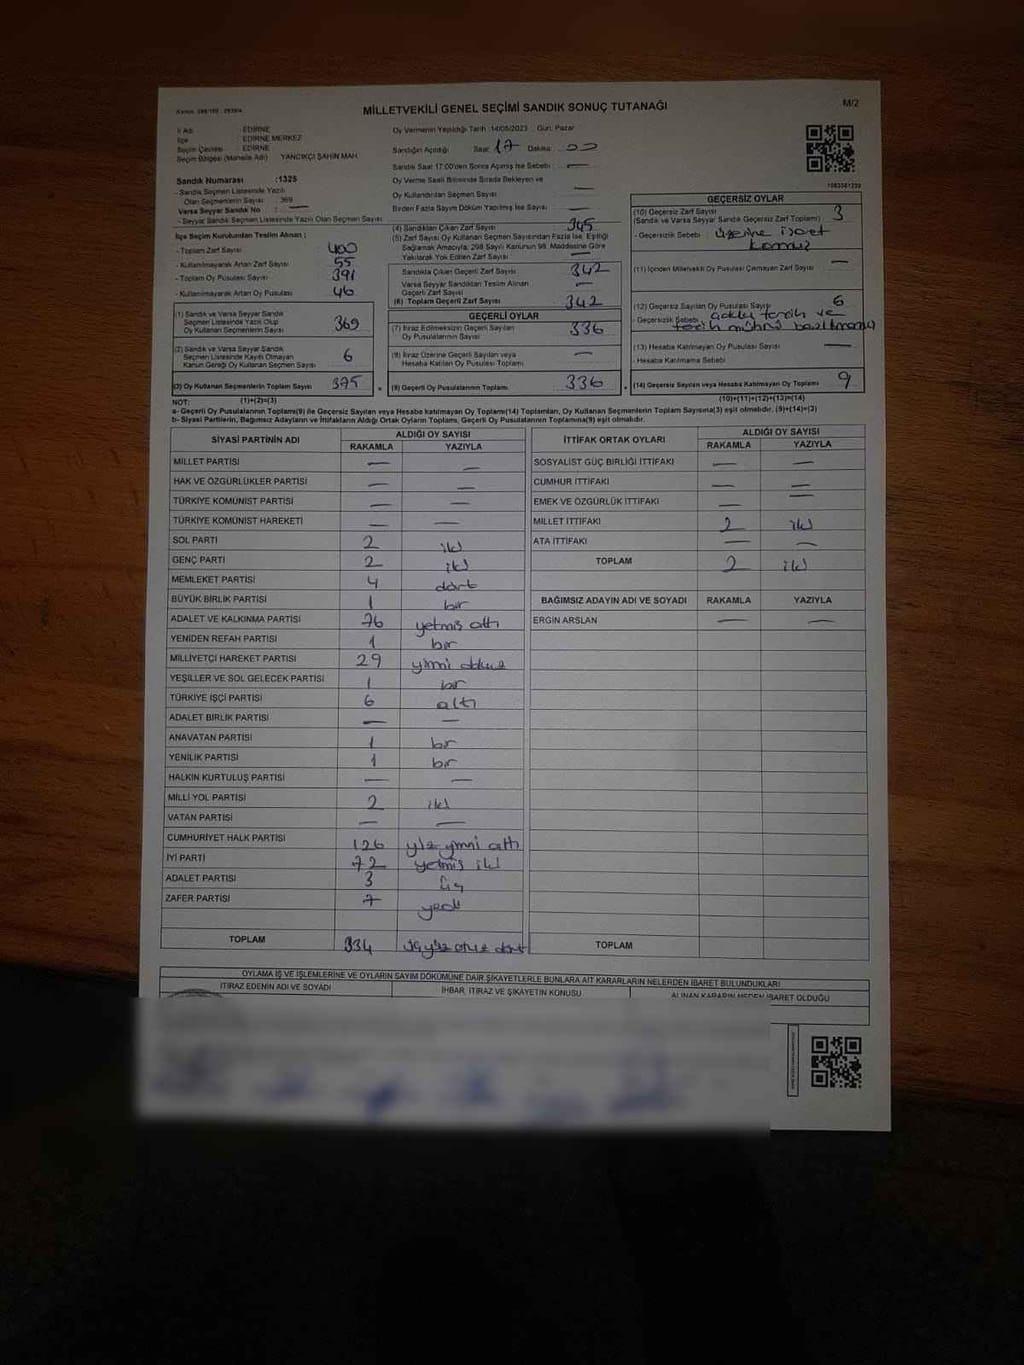 MİLLETVEKİLİ GENEL SEÇİMİ SANDIK SONUÇ TUTANAĞI
M/2
İl Adı : EDİRNE
İlçe : EDİRNE MERKEZ
Seçim Çevresi : EDİRNE
Seçim Bölgesi (Mahalle Adı) : YANCIKÇI ŞAHİN MAH.
Sandık Numarası :1325
- Sandık Seçmen Listesinde Yazılı
Olan Seçmenlerin Sayısı : 369
Varsa Seyyar Sandık No : —
- Seyyar Sandık Seçmen Listesinde Yazılı Olan Seçmen Sayısı
İlçe Seçim Kurulundan Teslim Alınan ;
- Toplam Zarf Sayısı 400
- Kullanılmayarak Artan Zarf Sayısı 55
- Toplam Oy Pusulası Sayısı 391
- Kullanılmayarak Artan Oy Pusulası 46
(1) Sandık ve Varsa Seyyar Sandık
Seçmen Listesinde Yazılı Olup
Oy Kullanan Seçmenlerin Sayısı 369
(2) Sandık ve Varsa Seyyar Sandık
Seçmen Listesinde Kayıtlı Olmayan
Kanun Gereği Oy Kullanan Seçmen Sayısı 6
(3) Oy Kullanan Seçmenlerin Toplam Sayısı 375
(1)+(2)=(3)
Oy Vermenin Yapıldığı Tarih :14/05/2023 Gün: Pazar
Sandığın Açıldığı Saat: 17 Dakika: 00
Sandık Saat 17:00'den Sonra Açılmış İse Sebebi : —
Oy Verme Saati Bitiminde Sırada Bekleyen ve
Oy Kullandırılan Seçmen Sayısı —
Birden Fazla Sayım Döküm Yapılmış İse Sayısı —
(4) Sandıktan Çıkan Zarf Sayısı 345
(5) Zarf Sayısı Oy Kullanan Seçmen Sayısından Fazla İse, Eşitliği
Sağlamak Amacıyla, 298 Sayılı Kanunun 98. Maddesine Göre
Yakılarak Yok Edilen Zarf Sayısı —
Sandıkta Çıkan Geçerli Zarf Sayısı 342
Varsa Seyyar Sandıktan Teslim Alınan
Geçerli Zarf Sayısı —
(6) Toplam Geçerli Zarf Sayısı 342
GEÇERLİ OYLAR
(7) İtiraz Edilmeksizin Geçerli Sayılan
Oy Pusulalarının Sayısı 336
(8) İtiraz Üzerine Geçerli Sayılan veya
Hesaba Katılan Oy Pusulası Toplamı —
(9) Geçerli Oy Pusulalarının Toplamı 336
GEÇERSİZ OYLAR
(10) Geçersiz Zarf Sayısı
(Sandık ve Varsa Seyyar Sandık Geçersiz Zarf Toplamı) 3
- Geçersizlik Sebebi : üzerine işaret
(11) İçinden Milletvekili Oy Pusulası Çıkmayan Zarf Sayısı —
(12) Geçersiz Sayılan Oy Pusulası Sayısı 6
- Geçersizlik Sebebi tercih ve
tercih mührü
(13) Hesaba Katılmayan Oy Pusulası Sayısı —
- Hesaba Katılmama Sebebi
(14) Geçersiz Sayılan veya Hesaba Katılmayan Oy Toplamı 9
(10)+(11)+(12)+(13)=(14)
NOT:
a- Geçerli Oy Pusulalarının Toplamı(9) ile Geçersiz Sayılan veya Hesaba katılmayan Oy Toplamı(14) Toplamları, Oy Kullanan Seçmenlerin Toplam Sayısına(3) eşit olmalıdır. (9)+(14)=(3)
b- Siyasi Partilerin, Bağımsız Adayların ve İttifakların Aldığı Ortak Oyların Toplamı, Geçerli Oy Pusulalarının Toplamına(9) eşit olmalıdır.
SİYASİ PARTİNİN ADI ALDIĞI OY SAYISI
RAKAMLA YAZIYLA
MİLLET PARTİSİ — —
HAK VE ÖZGÜRLÜKLER PARTİSİ — —
TÜRKİYE KOMÜNİST PARTİSİ — —
TÜRKİYE KOMÜNİST HAREKETİ — —
SOL PARTİ 2 iki
GENÇ PARTİ 2 iki
MEMLEKET PARTİSİ 4 dört
BÜYÜK BİRLİK PARTİSİ 1 bir
ADALET VE KALKINMA PARTİSİ 76 yetmiş altı
YENİDEN REFAH PARTİSİ 1 bir
MİLLİYETÇİ HAREKET PARTİSİ 29 yirmi dokuz
YEŞİLLER VE SOL GELECEK PARTİSİ 1 bir
TÜRKİYE İŞÇİ PARTİSİ 6 altı
ADALET BİRLİK PARTİSİ — —
ANAVATAN PARTİSİ 1 bir
YENİLİK PARTİSİ 1 bir
HALKIN KURTULUŞ PARTİSİ — —
MİLLİ YOL PARTİSİ 2 iki
VATAN PARTİSİ — —
CUMHURİYET HALK PARTİSİ 126 yüz yirmi altı
İYİ PARTİ 72 yetmiş iki
ADALET PARTİSİ 3 üç
ZAFER PARTİSİ 7 yedi
TOPLAM 334 üçyüz otuz dört
İTTİFAK ORTAK OYLARI ALDIĞI OY SAYISI
RAKAMLA YAZIYLA
SOSYALİST GÜÇ BİRLİĞİ İTTİFAKI — —
CUMHUR İTTİFAKI — —
EMEK VE ÖZGÜRLÜK İTTİFAKI — —
MİLLET İTTİFAKI 2 iki
ATA İTTİFAKI — —
TOPLAM 2 iki
BAĞIMSIZ ADAYIN ADI VE SOYADI RAKAMLA YAZIYLA
ERGİN ARSLAN — —
TOPLAM
OYLAMA İŞ VE İŞLEMLERİNE VE OYLARIN SAYIM DÖKÜMÜNE DAİR ŞİKAYETLERLE BUNLARA AİT KARARLARIN NELERDEN İBARET BULUNDUKLARI
İTİRAZ EDENİN ADI VE SOYADI İHBAR, İTİRAZ VE ŞİKAYETİN KONUSU ALINAN KARARIN NEDEN İBARET OLDUĞU